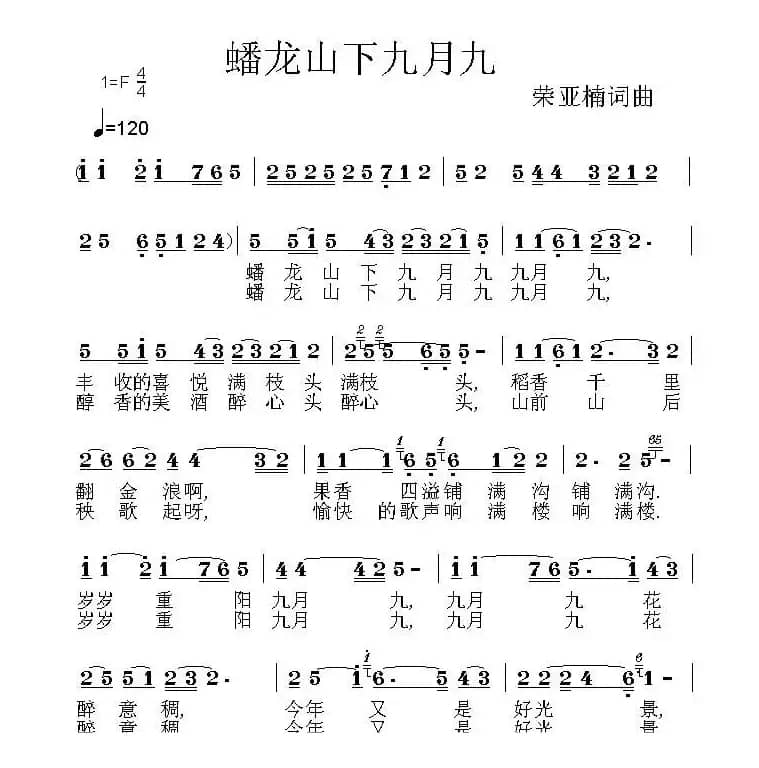 蟠龙山下九月九
1=F 4/4
荣亚楠词曲
♩=120
(1 1 2 1 7 6 5 | 2 5 2 5 2 5 7 1 2 | 5 2 5 4 4 3 2 1 2 |
2 5 6 5 1 2 4) | 5 5 1 5 4 3 2 3 2 1 5 | 1 1 6 1 2 3 2. |
蟠龙山下九月九九月九,
蟠龙山下九月九九月九,
5 5 1 5 4 3 2 3 2 1 2 | 2 5 5 6 5 5 - | 1 1 6 1 2. 3 2 |
丰收的喜悦满枝头满枝头,稻香千里
醇香的美酒醉心头醉心头,山前山后
2 6 6 2 4 4 3 2 | 1 1 1 6 5 6 1 2 2 | 2. 2 5 - |
翻金浪啊,果香四溢铺满沟铺满沟.
秧歌起呀,愉快的歌声响满楼响满楼.
1 1 2 1 7 6 5 | 4 4 4 2 5 - | 1 1 7 6 5. 1 4 3 |
岁岁重阳九月九,九月九花
岁岁重阳九月九,九月九花
2 5 5 1 2 3 2. | 2 5 1 6. 5 4 3 | 2 2 2 4 6 1 - |
醉意稠,今年又是好光景,
醉意稠,今年又是好光景